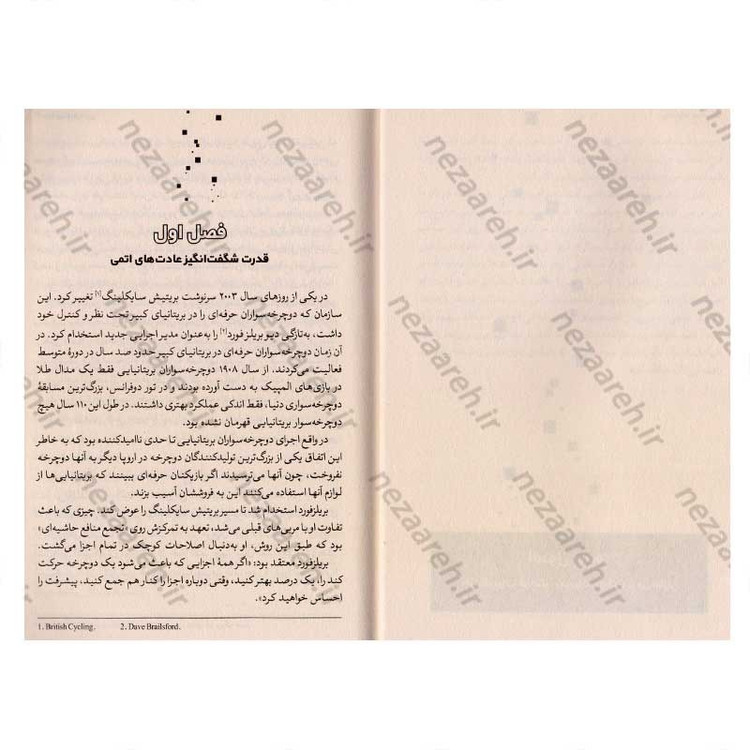 فصل اول
قدرت شگفت‌انگیز عادت‌های اتمی
در یکی از روزهای سال ۲۰۰۳ سرنوشت بریتیش سایکلینگ[۱] تغییر کرد. این
سازمان که دوچرخه‌سواران حرفه‌ای را در بریتانیای کبیر تحت نظر و کنترل خود
داشت، به‌تازگی دیو بریلزفورد[۲] را به‌عنوان مدیر اجرایی جدید استخدام کرد. در
آن زمان دوچرخه‌سواران حرفه‌ای در بریتانیای کبیر حدود صد سال در دورهٔ متوسط
فعالیت می‌کردند. از سال ۱۹۰۸ دوچرخه‌سواران بریتانیایی فقط یک مدال طلا
در بازی‌های المپیک به دست آورده بودند و در تور دوفرانس، بزرگ‌ترین مسابقهٔ
دوچرخه‌سواری دنیا، فقط اندکی عملکرد بهتری داشتند. در طول این ۱۱۰ سال هیچ
دوچرخه‌سوار بریتانیایی قهرمان نشده بود.
در واقع اجرای دوچرخه‌سواران بریتانیایی تا حدی ناامیدکننده بود که به خاطر
این اتفاق یکی از بزرگ‌ترین تولیدکنندگان دوچرخه در اروپا دیگر به آنها دوچرخه
نفروخت، چون آنها می‌ترسیدند اگر بازیکنان حرفه‌ای ببینند که بریتانیایی‌ها از
لوازم آنها استفاده می‌کنند این به فروششان آسیب بزند.
بریلزفورد استخدام شد تا مسیر بریتیش سایکلینگ را عوض کند. چیزی که باعث
تفاوت او با مربی‌های قبلی می‌شد، تعهد به تمرکزش روی «تجمع منافع حاشیه‌ای»
بود که طبق این روش، او به‌دنبال اصلاحات کوچک در تمام اجزا می‌گشت.
بریلزفورد معتقد بود: «اگر همهٔ اجزایی که باعث می‌شود یک دوچرخه حرکت
کند را، یک درصد بهتر کنید، وقتی دوباره اجزا را کنار هم جمع کنید، پیشرفت را
احساس خواهید کرد».
1. British Cycling. 2. Dave Brailsford.
nezaareh.ir
nezaareh.ir
nezaareh.ir
nezaareh.ir
nezaareh.ir
nezaareh.ir
nezaareh.ir
nezaareh.ir